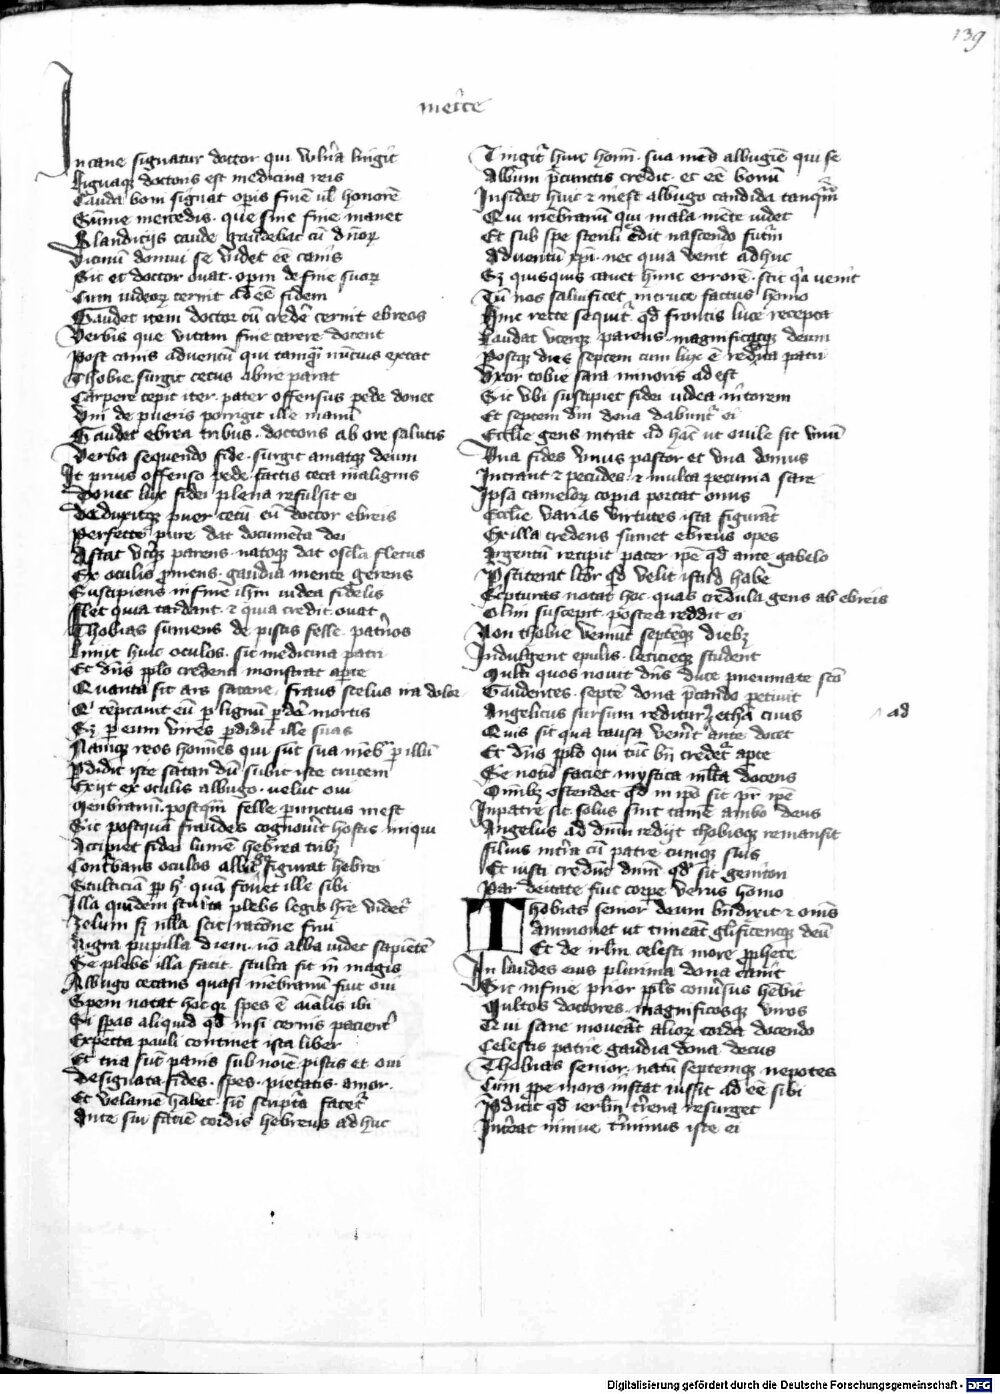 139
In cane signatur doctor qui vuln̄a lingit
Liguaq doctoris est medicina reis
Cauda boni signat opis finē ul honorē
Sūme mercedis que sine fine manet
Blanditijs caude gaudebat cū dn̄or
Vicinū domui se videt eē canis
Sic et doctor ouat opm de fine suor
Cum uideor cernit adeē fidem
Gaudet item doctor cū crede cernit ebreos
Verbis que vitam fine carere docent
Post canis adventū qui tamq nūcius extat
Thobie surgit cetus abire parat
Carpere cepit iter pater offensus pede donec
Vni de pueris porrigit ille manū
Gaudet ebrea tribus doctoris ab ore salutis
Verba sequendo fide surgit amatq deum
It prius offenso pede factis ceca malignis
Donec lux fidei plena refulsit ei
Deduxitq puer cetū cū doctor ebreis
Perfecte pure dat documēta dei
Astat vtq parens natoq dat oscla fletus
Ex oculis pmens gaudia mente gerens
Suscipiens in fine ihm iudea fidelis
Flet quia tardant et quia credit ouat
Thobias sumens de piscis felle patn̄os
Linijt huic oculos sit medicina patri
Et dn̄s pplo credenti monstrat apte
Quanta sit ars satane fraus scelus ira dolor
Q tēptauit eū p lignū pder mortis
Sz p eum vires pdidit ille suas
Namq reos homīes qui sūt sua mēb p illū
Pdidit iste satan dū subit iste crucem
Exijt ex oculis albugo velut oui
Menbranū postqm felle punctus inest
Sic postquā fraudes cognouit hostis iniqui
Accipiet fidei lumē hebrea trib
Conturbans oculos albugo figurat hebrei
Stulticiā pp h quā fouet ille sibi
Illa quidem stulta plebs legis hre videt
Zolum sz nlla scit racōne frui
Nigra pupilla diem nō alba videt sapiētē
Se plebs illa facit stulta sit īn magis
Albugo cecans quasi mēbranū fuit oui
Spem notat hoc qr spes ē aīalis ibi
Si spas aliquid qd nisi cernis pacient
Expecta pauli continet ista liber
Et tria sūt panis sub noīe piscis et oui
Designata fides spes pietatis amor
Et velamē habet sic scriptā facet
Ante sui faciē cordis hebreus adhuc
Tingit huic homī sua mēs albugīe qui se
Album pcunctis credit et eē bonū
Insidet huic et inest albugo candida tanqm
Qui mēbranū qui mala mēte videt
Et sub spe sterili cdit nascendo futm
Adventū xpi nec quia venit adhuc
Sz quisquis cauet hunc errorē scit qa venit
Tū nos saluificet in cruce factus homo
Hinc recte sequit qd frontis luce recepta
Laudat vterq parens magnificatq deum
Postq dies septem cum lux ē reddita patri
Vxor tobie sara minoris adest
Sic vbi suscipiet fidei iudea nitorem
Et septem dn̄i dona dabunt ei
Ecclie gens intrat ad hāc ut ouile sit vnū
Vna fides vnus pastor et vna domus
Intrant et pecudes et multa pecunia sare
Ipsa camelor copia portat onus
Ecclie varias virtutes ista figurāt
Ex illa credens sumet ebreus opes
Argentū recipit pater ipē qd ante gabelo
Pstiterat ltor qd velit istud habe
Scpturas notat hoc quas credula gens ab ebreis
Olim suscepit postea reddit ei
Non thobie veniūt septeq dieb
Indulgent epulis leticieq student
Multi quos nouit dn̄s duce pneumate scō
Gaudentes septē dona pcando petiuit
Angelicus sursum reditur et hā ciuis
ad
Quis sit qua causa venit ante docet
Et dn̄s pplo qui tūc bn̄ credet apte
Se notū faciet mystica mlta docens
Omīb ostendet qd in ipō sit pr ipē
In patre sit solus sint tamē ambo deus
Angelus ad dnm redijt thobisq remansit
Filius intra cū patre cumq suis
Et iusti credūt dnm qd sit genitori
Par deitate fuit corpe verus homo
Thobias senior deum bn̄dixit et omīs
Ammonet ut timeāt glificentq deū
Et de irlm celesti more pphete
In laudes eius plurima dona canit
Sic in fine prior ppls conuersus hebit
Multos doctores magnificosq viros
Qui sane moueāt alior corda docendo
Celestis patrie gaudia dona decus
Thobias senior natū septemq nepotes
Cum ppe mors instat iussit adeē sibi
Pdicit qd ierlm tn̄ena resurget
Int̄eat niniue t̄minus iste ei
Digitalisierung gefördert durch die Deutsche Forschungsgemeinschaft - DFG